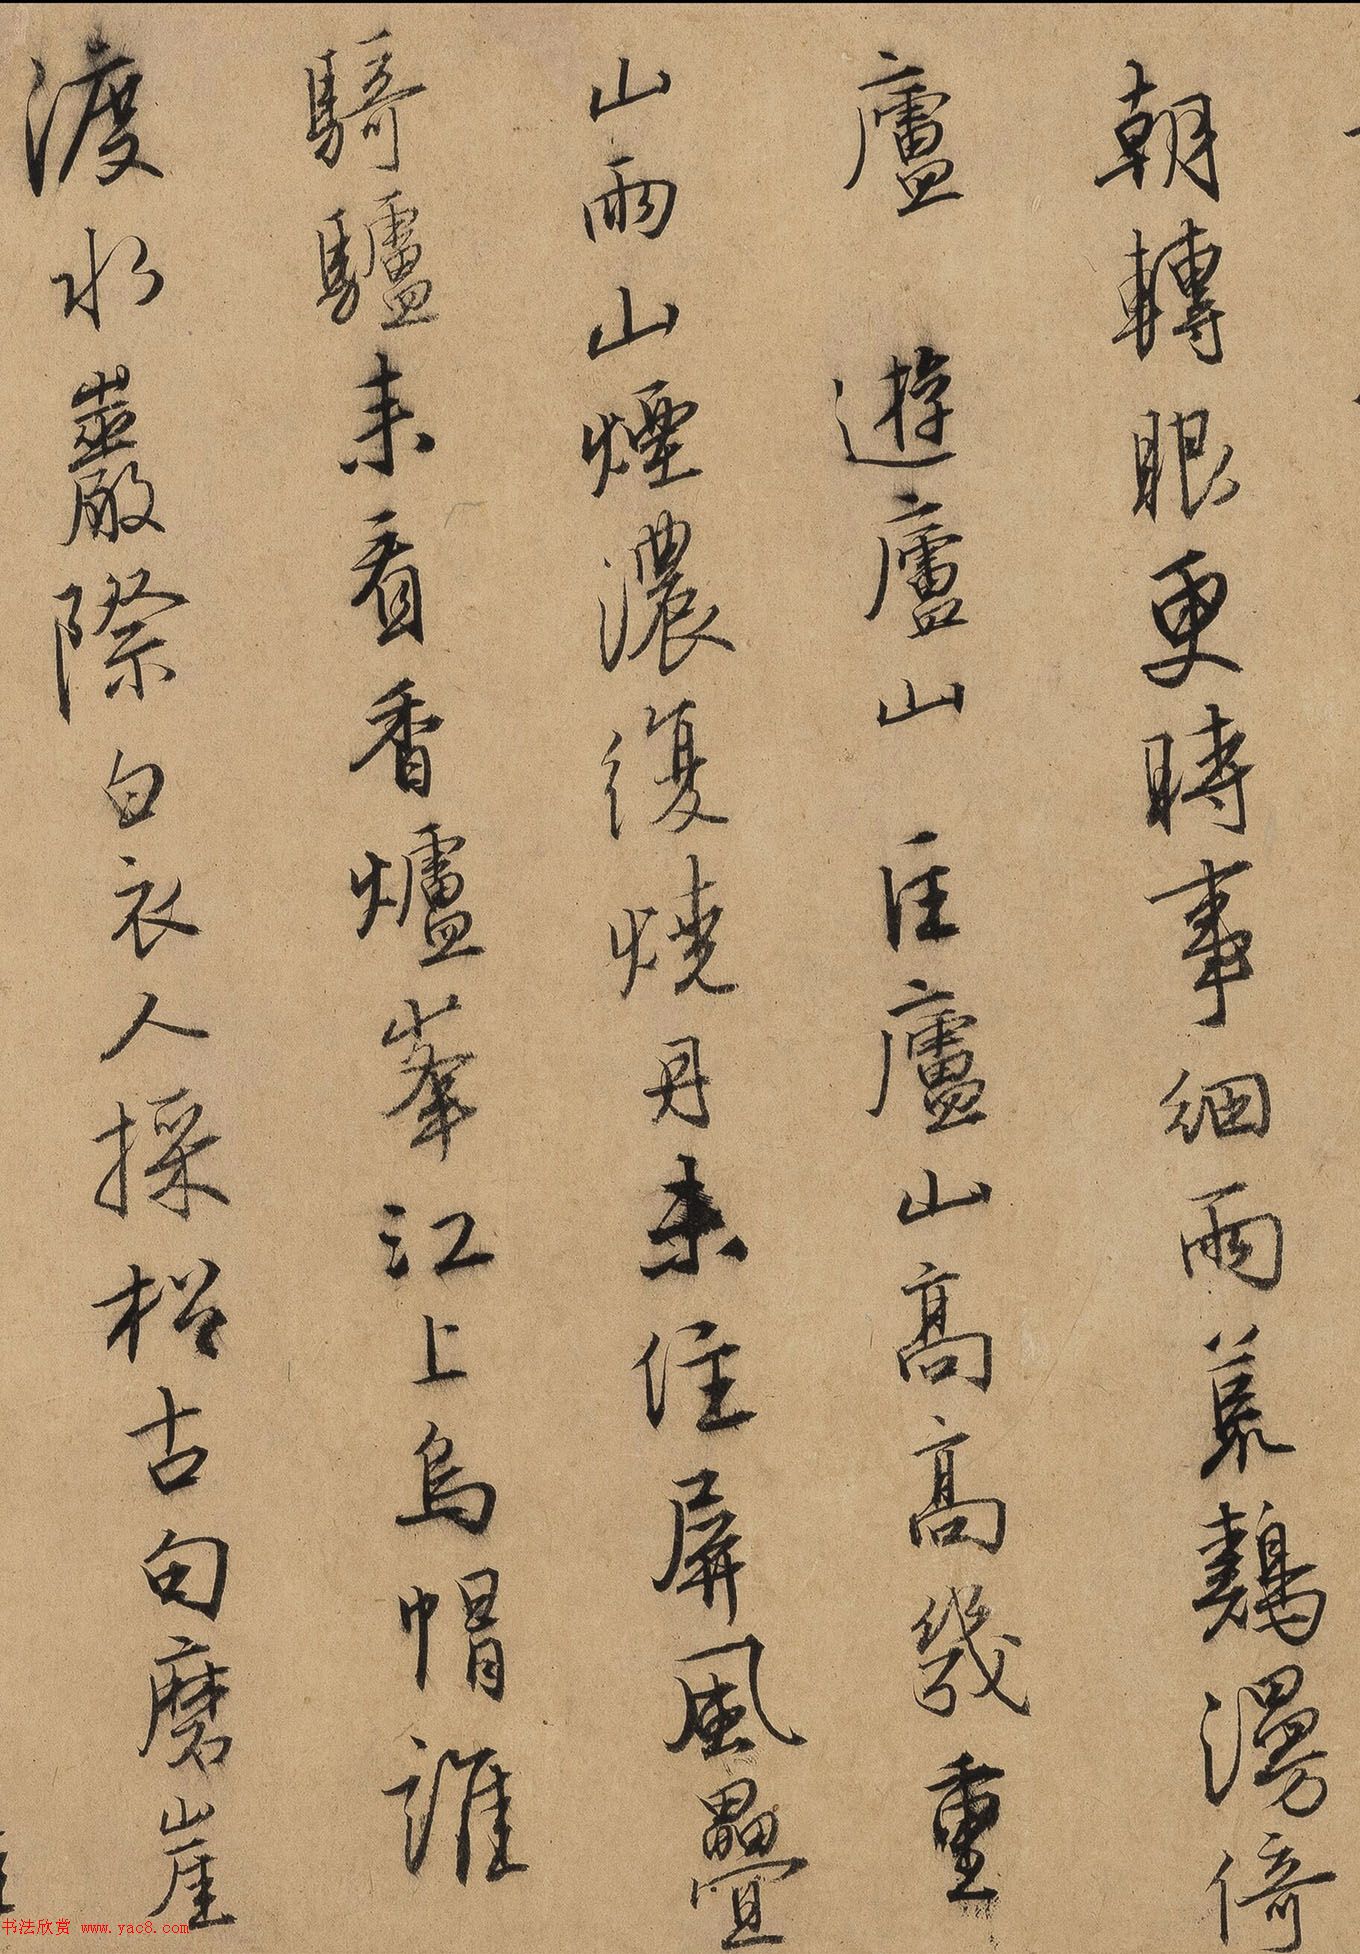 朝轉眼更時事細雨慕鷬漫倚
廬 遊廬山 住廬山高高幾重
山雨山煙濃復燒丹未住屏風疊
騎驢来看香爐峯江上烏帽誰
渡水巖際白衣人採松古甸磨崖
书法欣赏 www.yac8.com